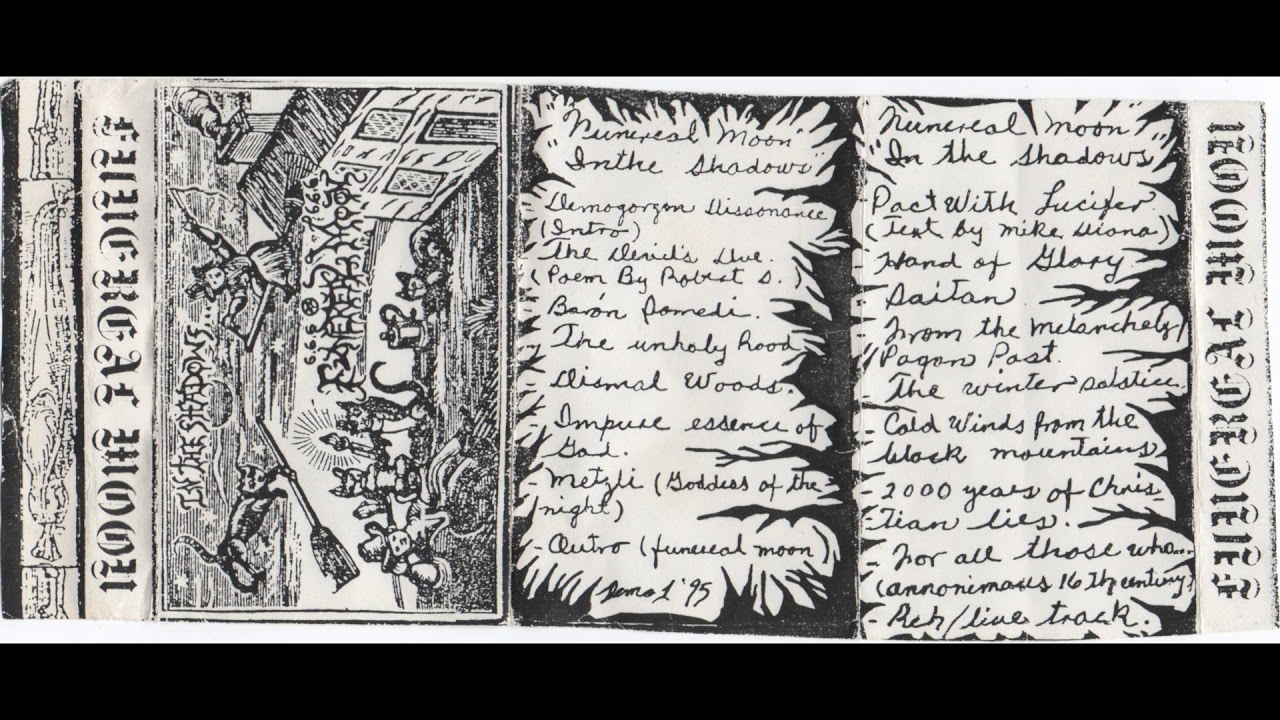 FUNEREAL MOON
IN THE SHADOWS...
FUNEREAL MOON
"Funereal Moon"
"In the Shadows"
- Demogorgon Dissonance
(Intro)
- The Devil's Live.
(Poem By Robert S.
- Barón Pomedi.
- The unholy hood
- Dismal Woods.
- Impure essence of
God.
- Metzli (Goddess of the
night)
- Outro (funereal moon)
Demo 1 '95
"Funereal Moon"
"In the Shadows"
- Pact With Lucifer
(Text by Mike Diana)
- Hand of Glory
- Saitan
- From the Melancholy/
Pagan Past.
- The winter solstice.
- Cold Winds from the
black mountains
- 2000 years of Chris
tian lies.
- For all those who....
(annonimous 16 Th century)
- Reh/live track.
FUNEREAL MOON